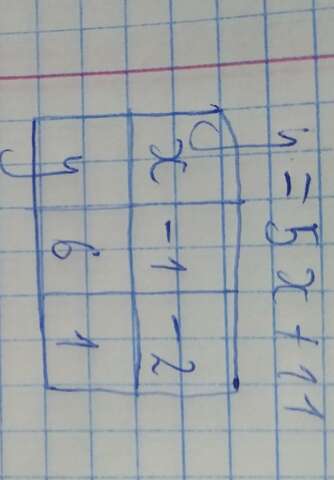 y = 5x + 11
x -1 -2
y 6 1